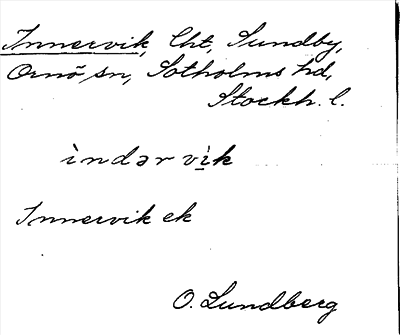 Innervik, Cht, Sundby,
Ornö sn, Sotholms hd,
Stockh. l.
ìndər vìk
Innervik ek
O. Lundberg